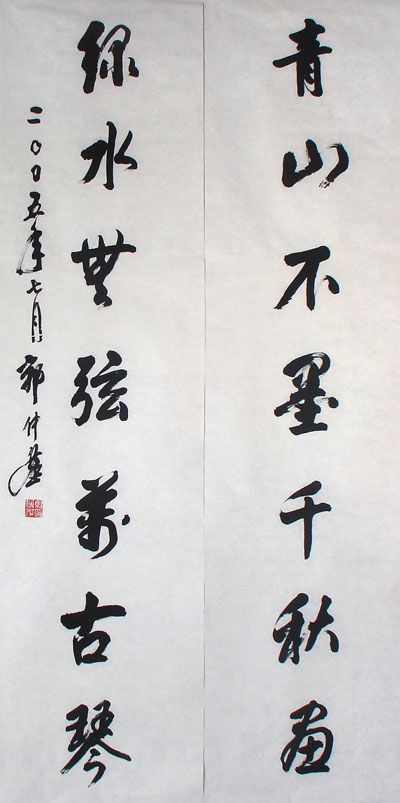 青山不墨千秋画
綠水無弦萬古琴
二〇〇五年七月郭仲